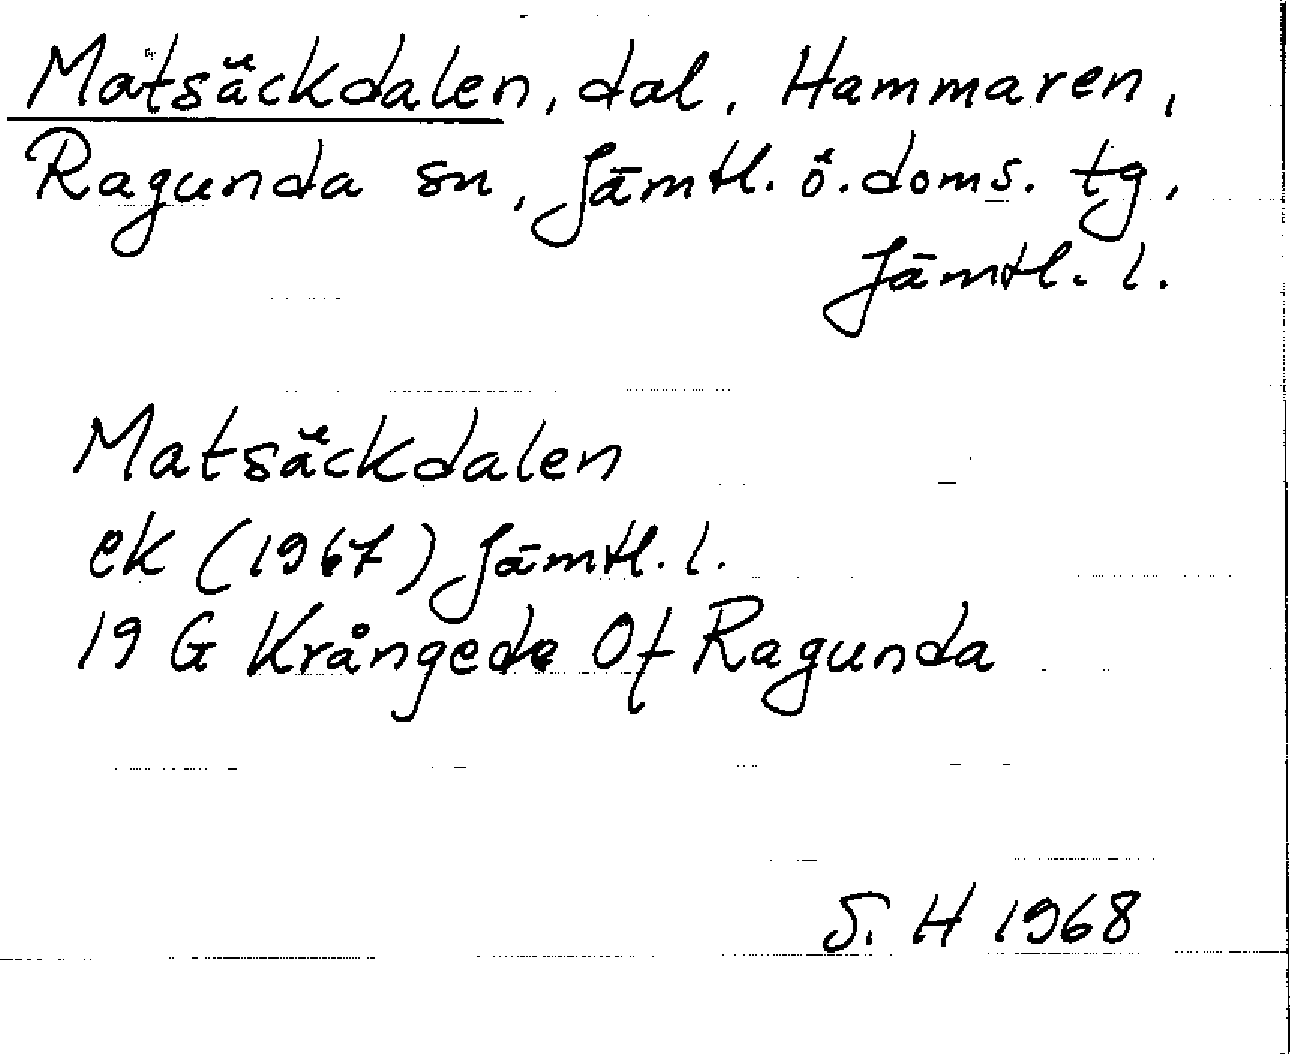 Matsäckdalen, dal, Hammaren,
Ragunda sn, Jämtl. ö. doms. tg,
Jämtl. l.
Matsäckdalen
ek (1967) Jämtl. l.
19 G Krångede Of Ragunda
S. H 1968